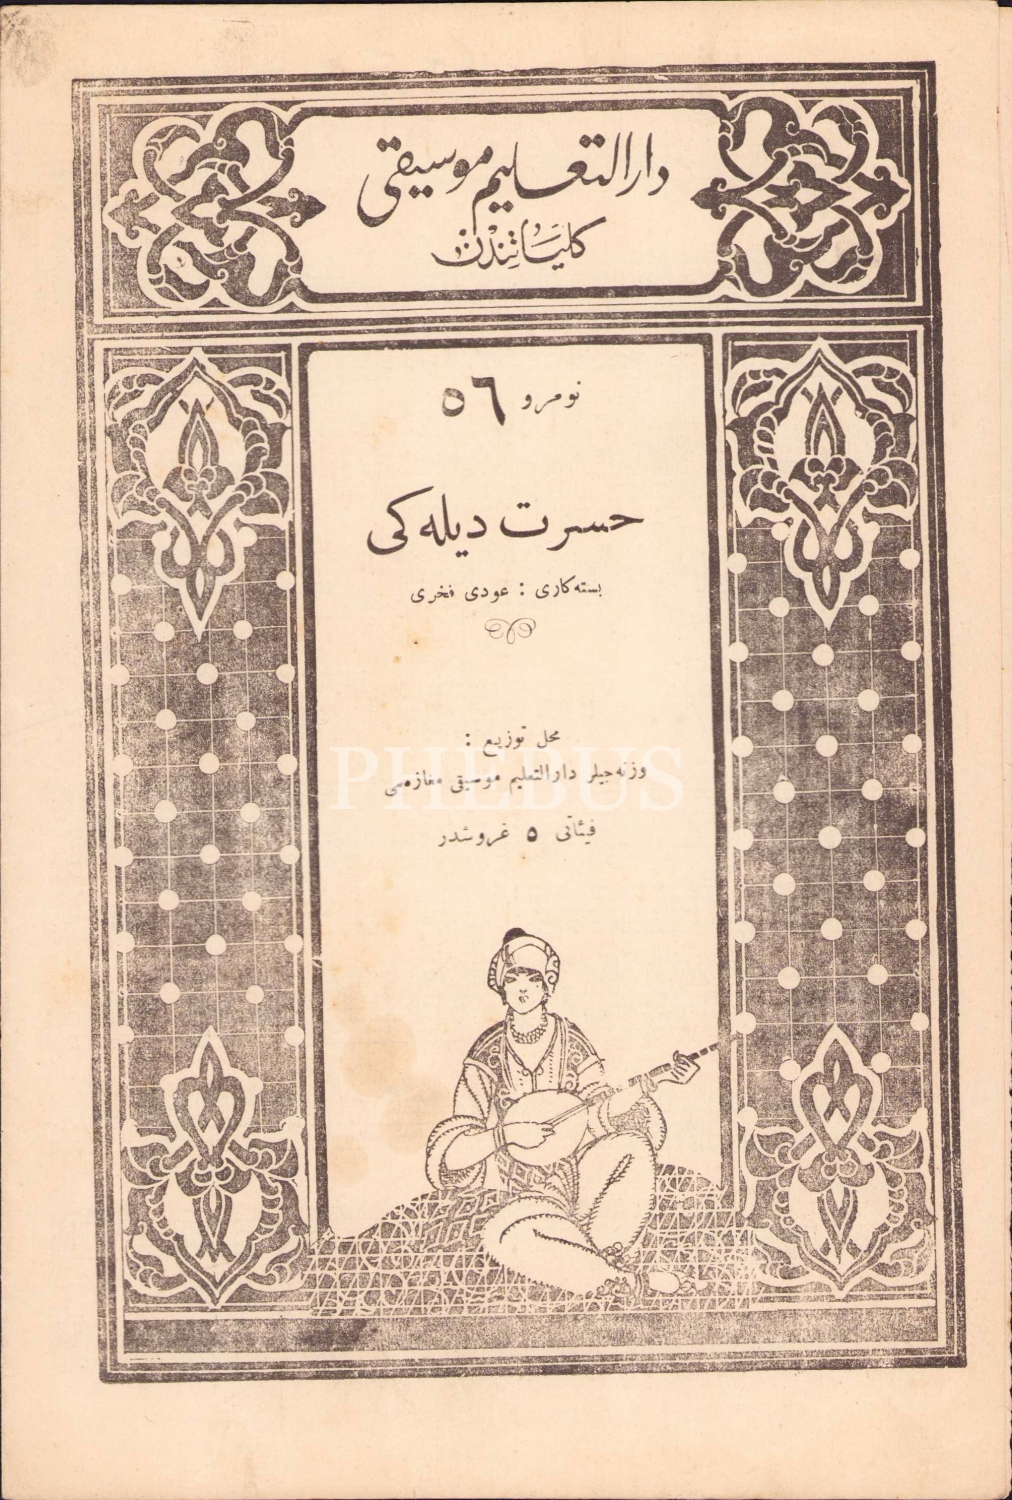 دارالتعلیم موسیقی
کلیاتندن
نومرو ٥٦
حسرت دیله کی
بسته کاری : عودی فخری
محل توزیع :
وزنه جیلر دارالتعلیم موسیقی مغازه سی
فیئاتی ٥ غروشدر
PHEBUS